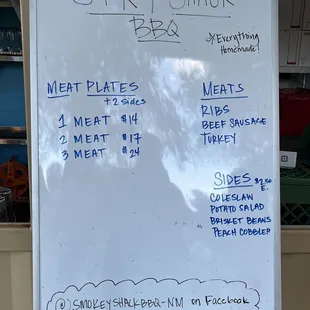 BBQ
*Everything
Homemade!
MEAT PLATES
+2 sides
1 MEAT $14
2 MEAT $17
3 MEAT $24
MEATS
RIBS
BEEF SAUSAGE
TURKEY
SIDES $2.50
E.
COLESLAW
POTATO SALAD
BRISKET BEANS
PEACH COBBLER
@SMOKEYSHACKBBQ-NM on Facebook